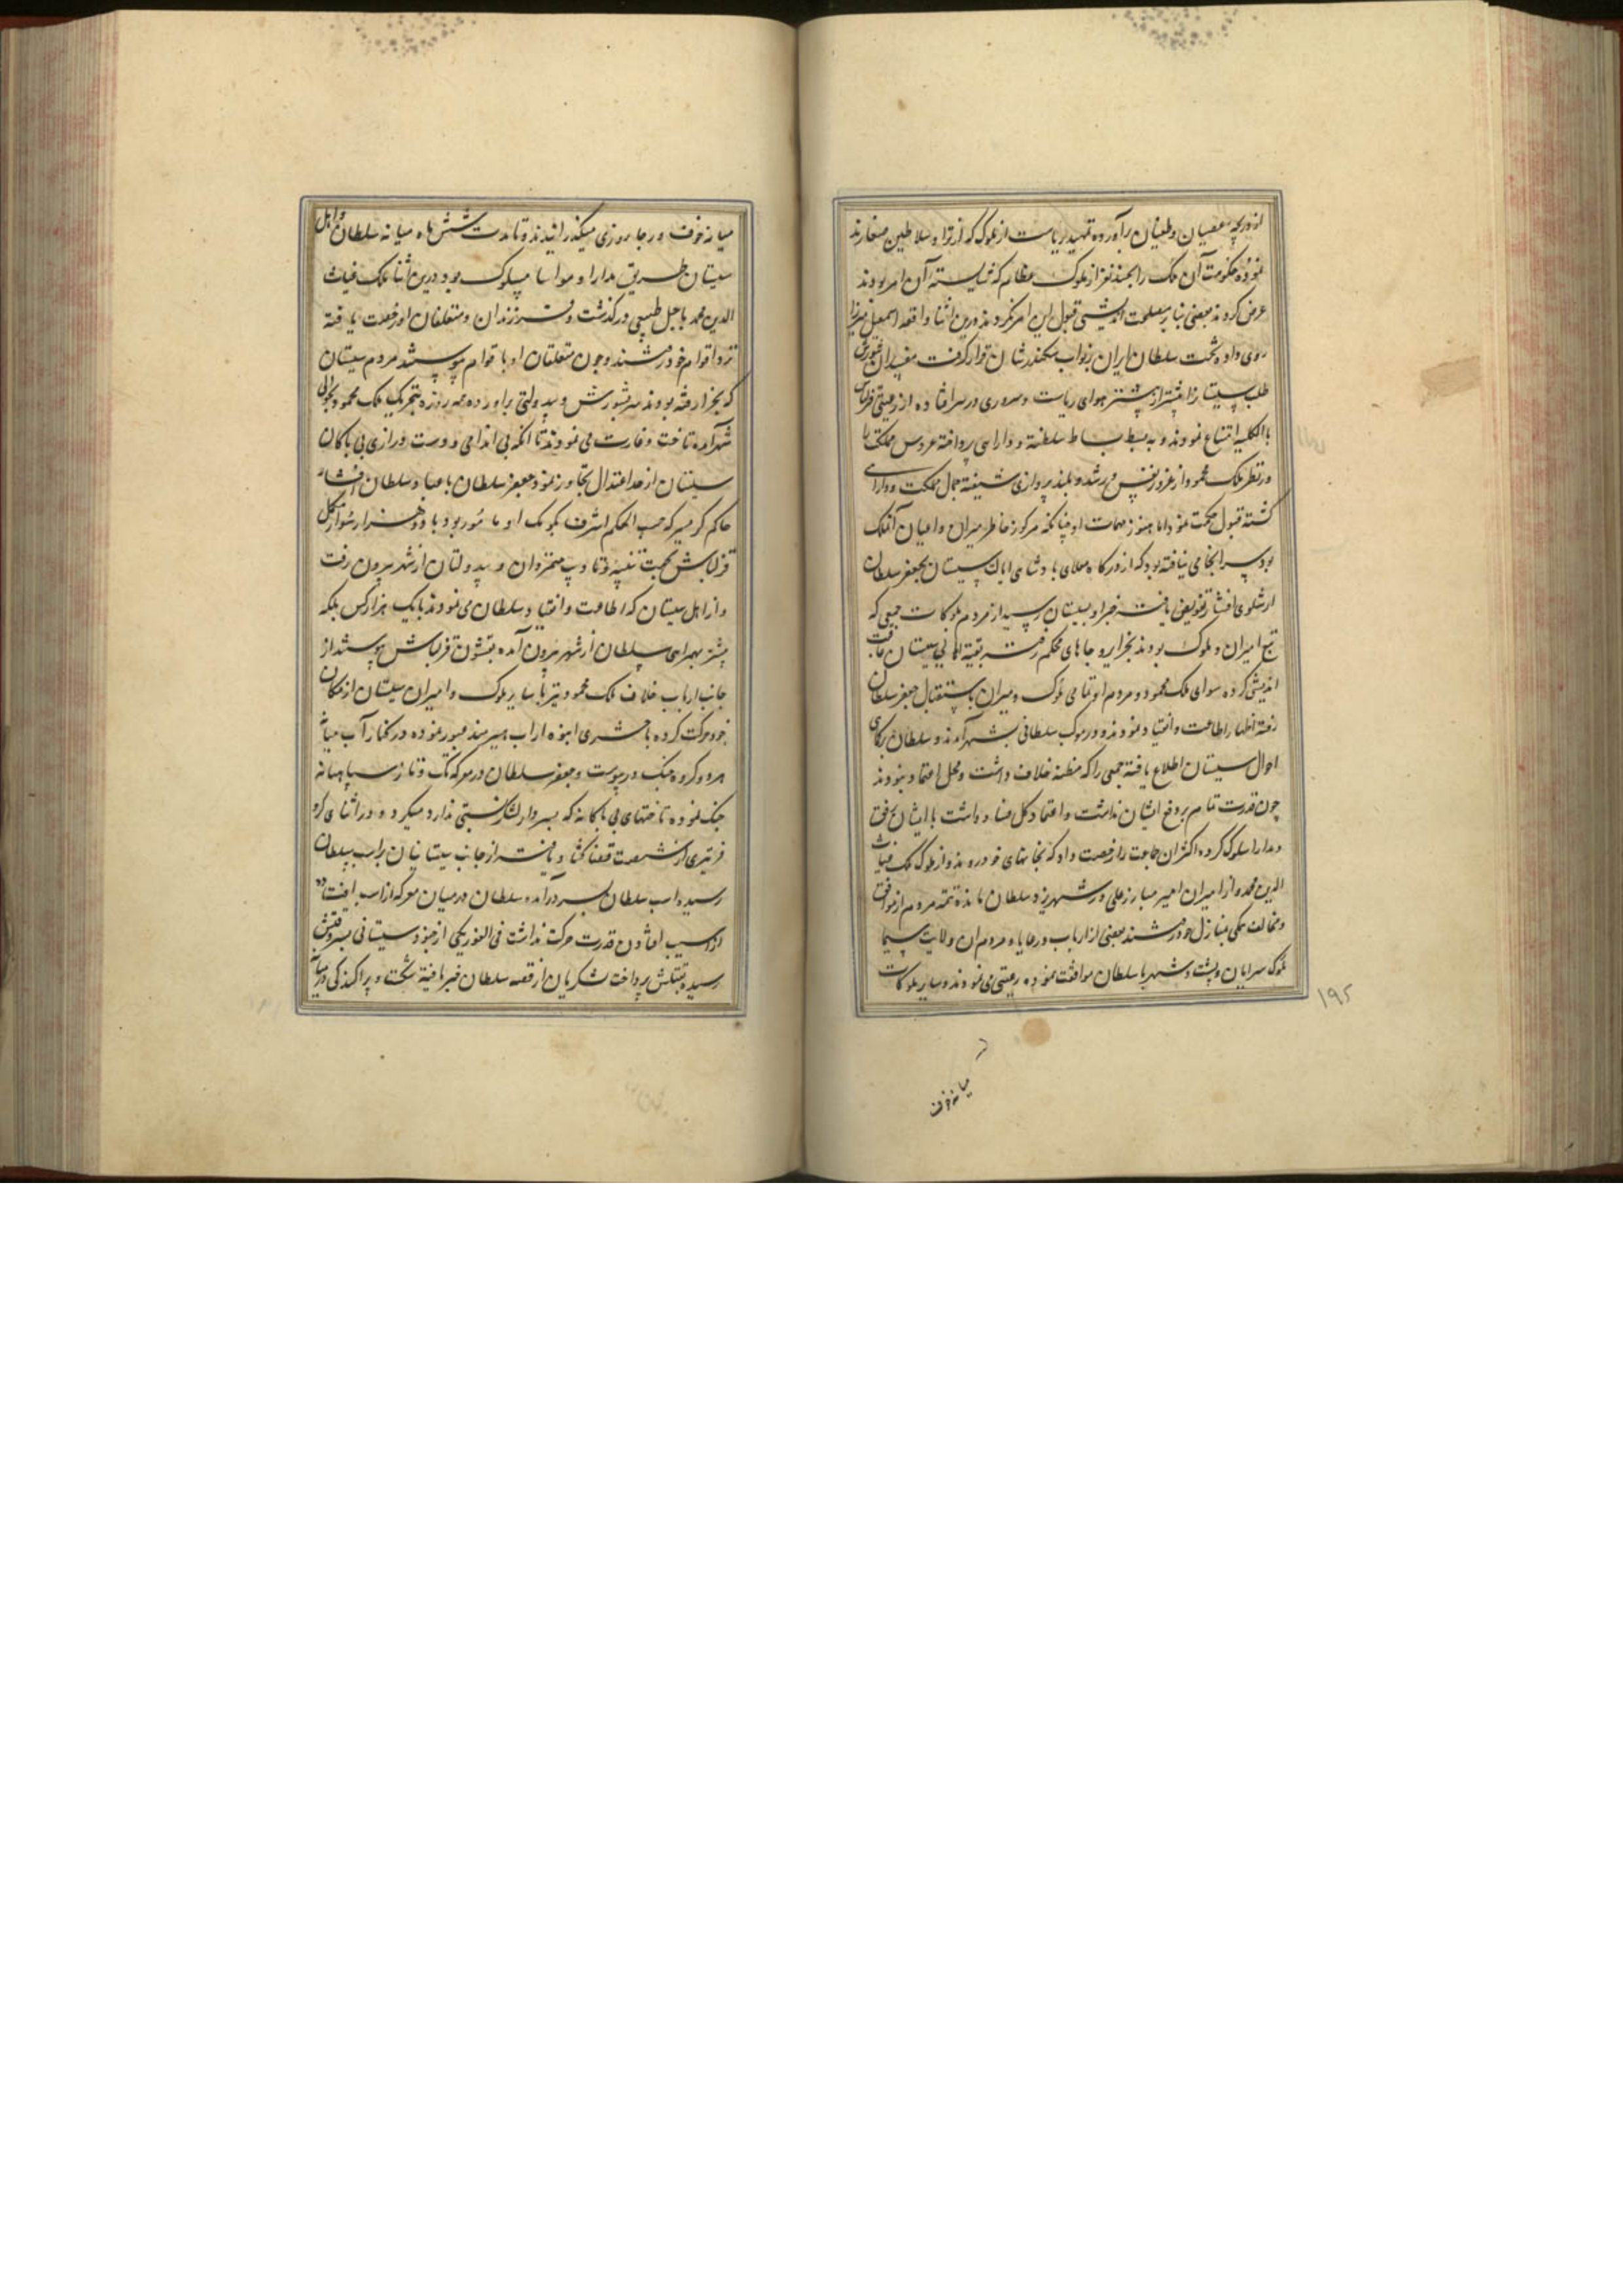 از دریچه عصیان و طغیان برآورده تمهید ریاست از ملوک که از نژاد سلاطین صفارند
نموده حکومت آن ملک را بچند نفر از ملوک عظام که شایسته آن امر بودند
عرض کردند بعضی بنابر مصلحت اندیشی قبول این امر نکردند و درین اثنا واقعه اسمعیل میرزا
روی داده تخت سلطان ایران بنواب سکندر شان قرار گرفت مفسدان شورش
طلب سیستان را بیشتر از پیشتر هوای ریاست و سروری در سر افتاده از رعیتی قزلباش
بالکلیه امتناع نمودند و به بسط بساط سلطنة و دارایی پرداخته عروس مملکت را
در نظر ملک محمود از غرور نفس بلند پروازی شیفته جمال مملکت و دارایی
گشته قبول حکومت نمود اما هنوز مهمات او چنانکه مرکوز خاطر میران و اعیان آنملک
بود سرانجامی نیافته بود که از درگاه معلای پادشاهی ایالت سیستان بجعفر سلطان
ارشلوی افشار تفویض یافته خبر او بسیستان رسید از مردم بلوکات جمعی که
تبع امیران و ملوک بودند بخزایر و جاهای محکم رفتند بقیة اهالی سیستان عاقبت
اندیشی کرده سوای ملک محمود و مردم او تمامی ملوک و میران باستقبال جعفر سلطان
رفته اظهار اطاعت و انقیاد نمودند و در موکب سلطانی بشهر آمدند و سلطان بر
احوال سیستان اطلاع یافته جمعی را که مظنه خلاف داشت و محل اعتماد نبودند
چون قدرت تمام بر دفع ایشان نداشت و اعتماد کل داشت با ایشان برفق
و مدارا سلوک کرده اکثر ان جماعت را رخصت داد که بخانهای خود روند و از ملوک ملک غیاث
الدین محمد و از امیران امیر مبارز علی در شهر نزد سلطان مانده تتمه مردم از موافق
و مخالف همگی بمنازل خود رفتند بعضی از ارباب و رعایا و مردم ان ولایت سیما
ملوک سرابان و پشت شهر با سلطان موافقت نموده رعیتی می نمودند و سایر بلوکات
میانه خوف
۱۹۵
میانه خوف و رجا روزی میگذرانیدند و تا مدت شش ماه میانه سلطان و اهل
سیستان طریق مدارا و مواسا مسلوک بود درین اثنا ملک غیاث
الدین محمد باجل طبیعی درگذشت و فرزندان و متعلقان او رخصت یافته
نزد اقوام خود رفتند و چون متعلقان او با قوام پیوستند مردم سیستان
که بخزایر رفته بودند سر بشورش و بیدولتی برآورده همه روزه بتحریک ملک محمود بحوالی
شهر آمده تاخت و غارت می نمودند تا انکه بی اندامی و دست درازی بی باکان
سیستان از حد اعتدال تجاوز نمود جعفر سلطان با سلطان افشار
حاکم گرمسیر که حسب الحکم اشرف بکومک او مامور بود با دو هزار سوار مکمل
قزلباش بجهت تنبیه و تادیب متمردان و بیدولتان از شهر بیرون رفت
و از اهل سیستان که اطاعت و انقیاد سلطان می نمودند با یک هزار کس بلکه
بیشتر بهمراهی سلطان از شهر بیرون آمده بقشون قزلباش پیوستند از
جانب ارباب خلاف ملک محمود نیز با سایر ملوک و امیران سیستان از مکان
خود حرکت کرده با حشری انبوه از اب هیرمند عبور نموده در کنار آب میانه
هر دو گروه جنگ در پیوست و جعفر سلطان در معرکه تک و تاز سپاهیانه
جنگ نموده تاختهای بی باکانه که بسردار لشکر نسبتی ندارد میکرد و در اثنای کر و
فر تیری از شصت قضا گشاد یافته از جانب سیستانیان بر اسب سلطان
رسیده اسب سلطان بسر درآمده سلطان در میان معرکه از اسب افتاده
از اسیب افتادن قدرت حرکت نداشت فی الفور یکی از جنود سیستانی بسر وقتش
رسیده بقتلش پرداخت لشکریان از قصه سلطان خبر یافته شکست و پراکندگی در میانه